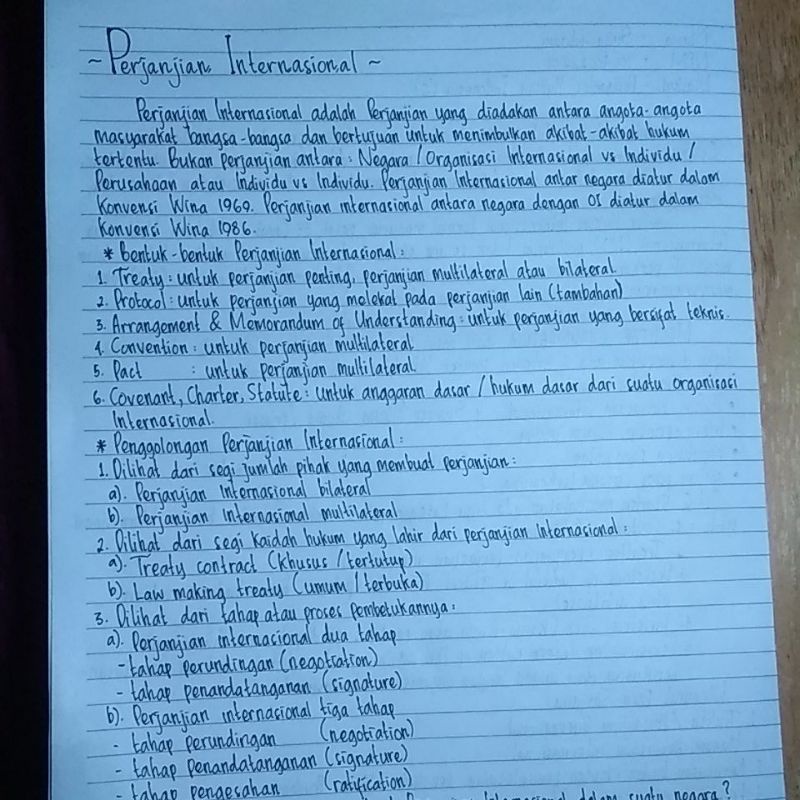 ~ Perjanjian Internasional ~
Perjanjian Internasional adalah Perjanjian yang diadakan antara angota-angota
masyarakat bangsa-bangsa dan bertujuan untuk menimbulkan akibat-akibat hukum
tertentu. Bukan perjanjian antara : Negara / Organisasi Internasional vs Individu /
Perusahaan atau Individu vs Individu. Perjanjian Internasional antar negara diatur dalam
Konvensi Wina 1969. Perjanjian internasional antara negara dengan OI diatur dalam
Konvensi Wina 1986.
* Bentuk-bentuk Perjanjian Internasional :
1. Treaty : untuk perjanjian penting, perjanjian multilateral atau bilateral.
2. Protocol : untuk perjanjian yang melekat pada perjanjian lain (tambahan)
3. Arrangement & Memorandum of Understanding : untuk perjanjian yang bersifat teknis.
4. Convention : untuk perjanjian multilateral
5. Pact : untuk perjanjian multilateral
6. Covenant, Charter, Statute : untuk anggaran dasar / hukum dasar dari suatu organisasi
Internasional.
* Penggolongan Perjanjian Internasional :
1. Dilihat dari segi jumlah pihak yang membuat perjanjian :
a). Perjanjian Internasional bilateral
b). Perjanjian Internasional multilateral
2. Dilihat dari segi kaidah hukum yang lahir dari perjanjian Internasional :
a). Treaty contract (khusus / tertutup)
b). Law making treaty (umum / terbuka)
3. Dilihat dari tahap atau proses pembetukannya :
a). Perjanjian internasional dua tahap
- tahap perundingan (negotiation)
- tahap penandatanganan (signature)
b). Perjanjian internasional tiga tahap
- tahap perundingan (negotiation)
- tahap penandatanganan (signature)
- tahap pengesahan (ratification)
dalam suatu negara ?